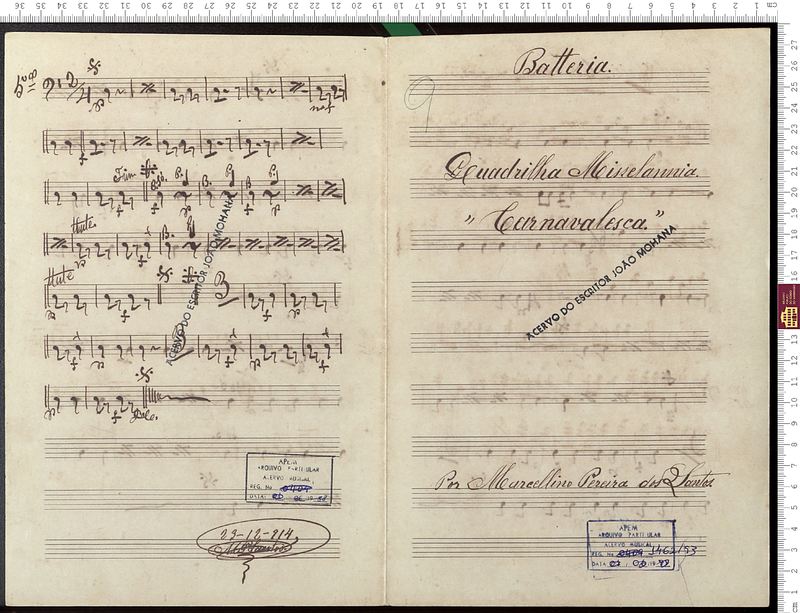 Fim
flute
flute
ACERVO DO ESCRITOR JOÃO MOHANA
APEM
ARQUIVO PARTICULAR
ACERVO MUSICAL
REG. No
DATA:
23-12-914
Batteria.
9
Quadrilha Misselannia
"Carnavalesca."
ACERVO DO ESCRITOR JOÃO MOHANA
Por Marcellino Pereira dos Santos
APEM
ARQUIVO PARTICULAR
ACERVO MUSICAL
REG. No 0409 1462/93
DATA